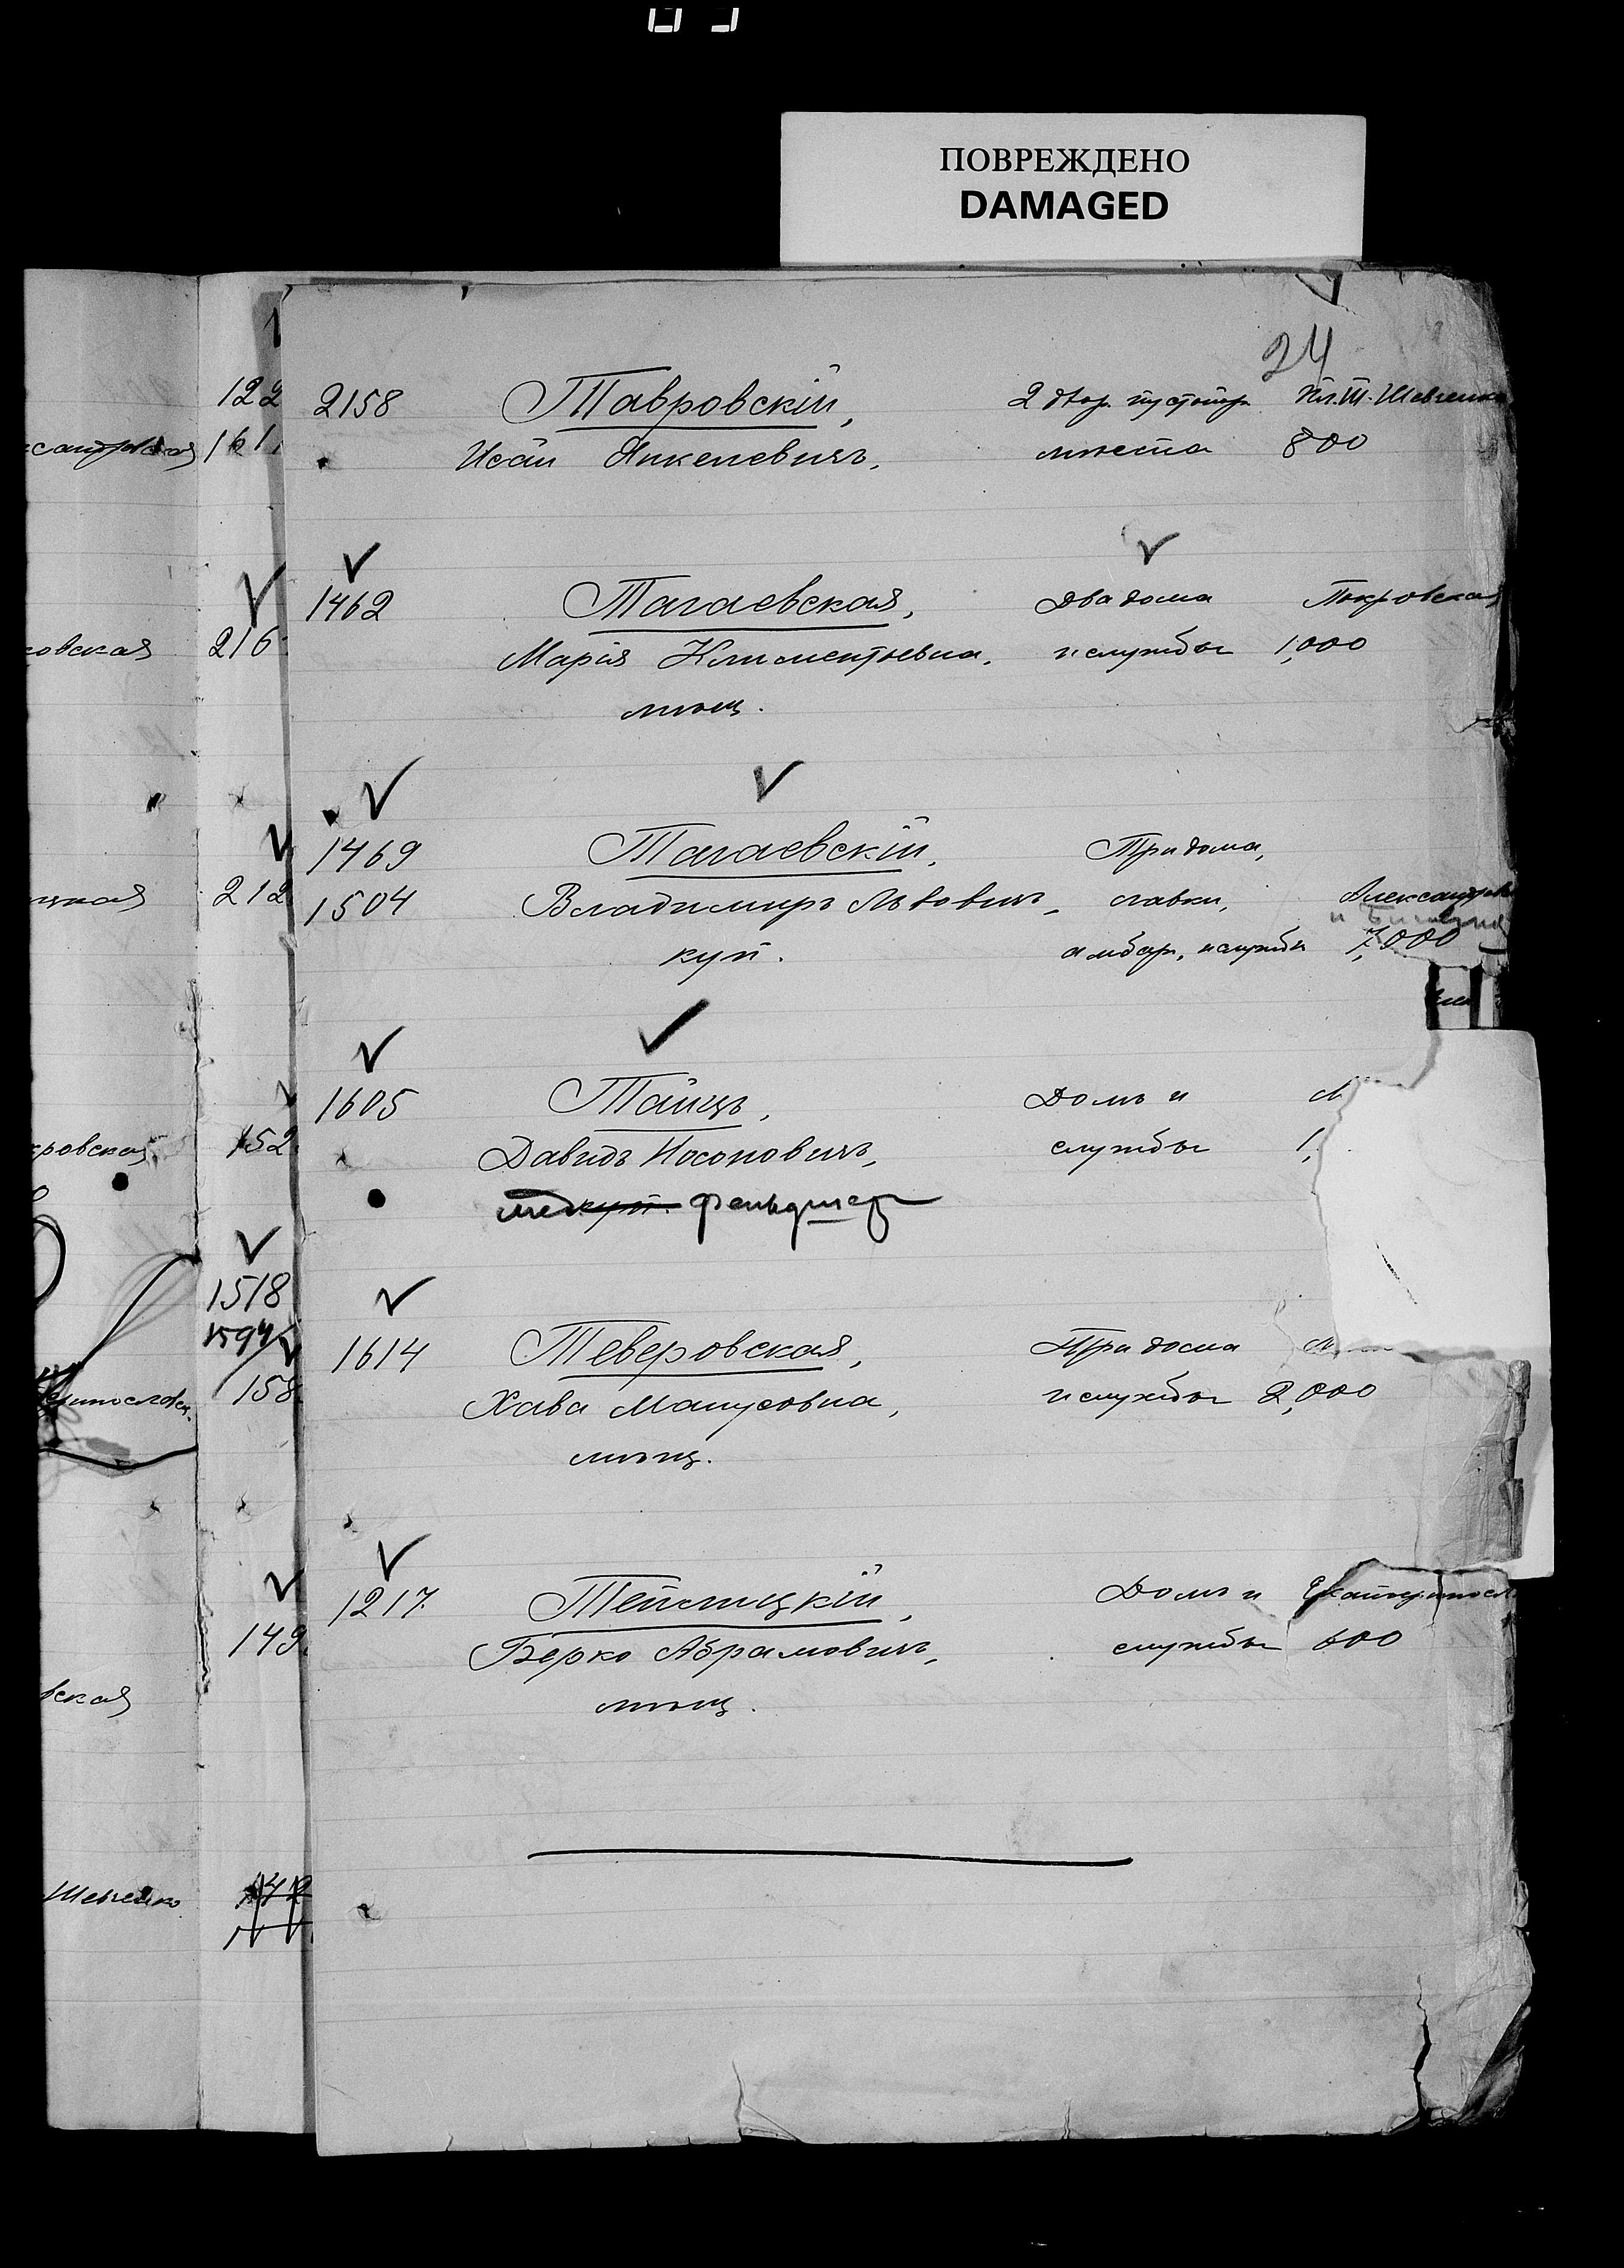 ПОВРЕЖДЕНО
DAMAGED
24
122
2158 Тавровскій, 2 двор. пустопор. Пл. Т. Шевченко
161.
Исай Янкелевичъ, мѣста 800
1462 Тагаевская, Два дома Покровская
овская 216
Марія Климентьевна, и службы 1,000
мѣщ.
1469 Тагаевскій, Три дома,
212
1504 Владимиръ Львовичъ, лавки, Александров
куп. амбар, и службы 7,000
1605 Тайцъ, Домъ и
кровская 152
Давидъ Носоновичъ, службы 1,
фельдшер
1518
1594
1614 Теверовская, Три дома
158
Хава Манусовна, и службы 2,000
мѣщ.
1217 Теплицкій, Домъ и Екатериносл
149.
Берко Абрамовичъ, службы 600
вская
мѣщ.
Шевченко